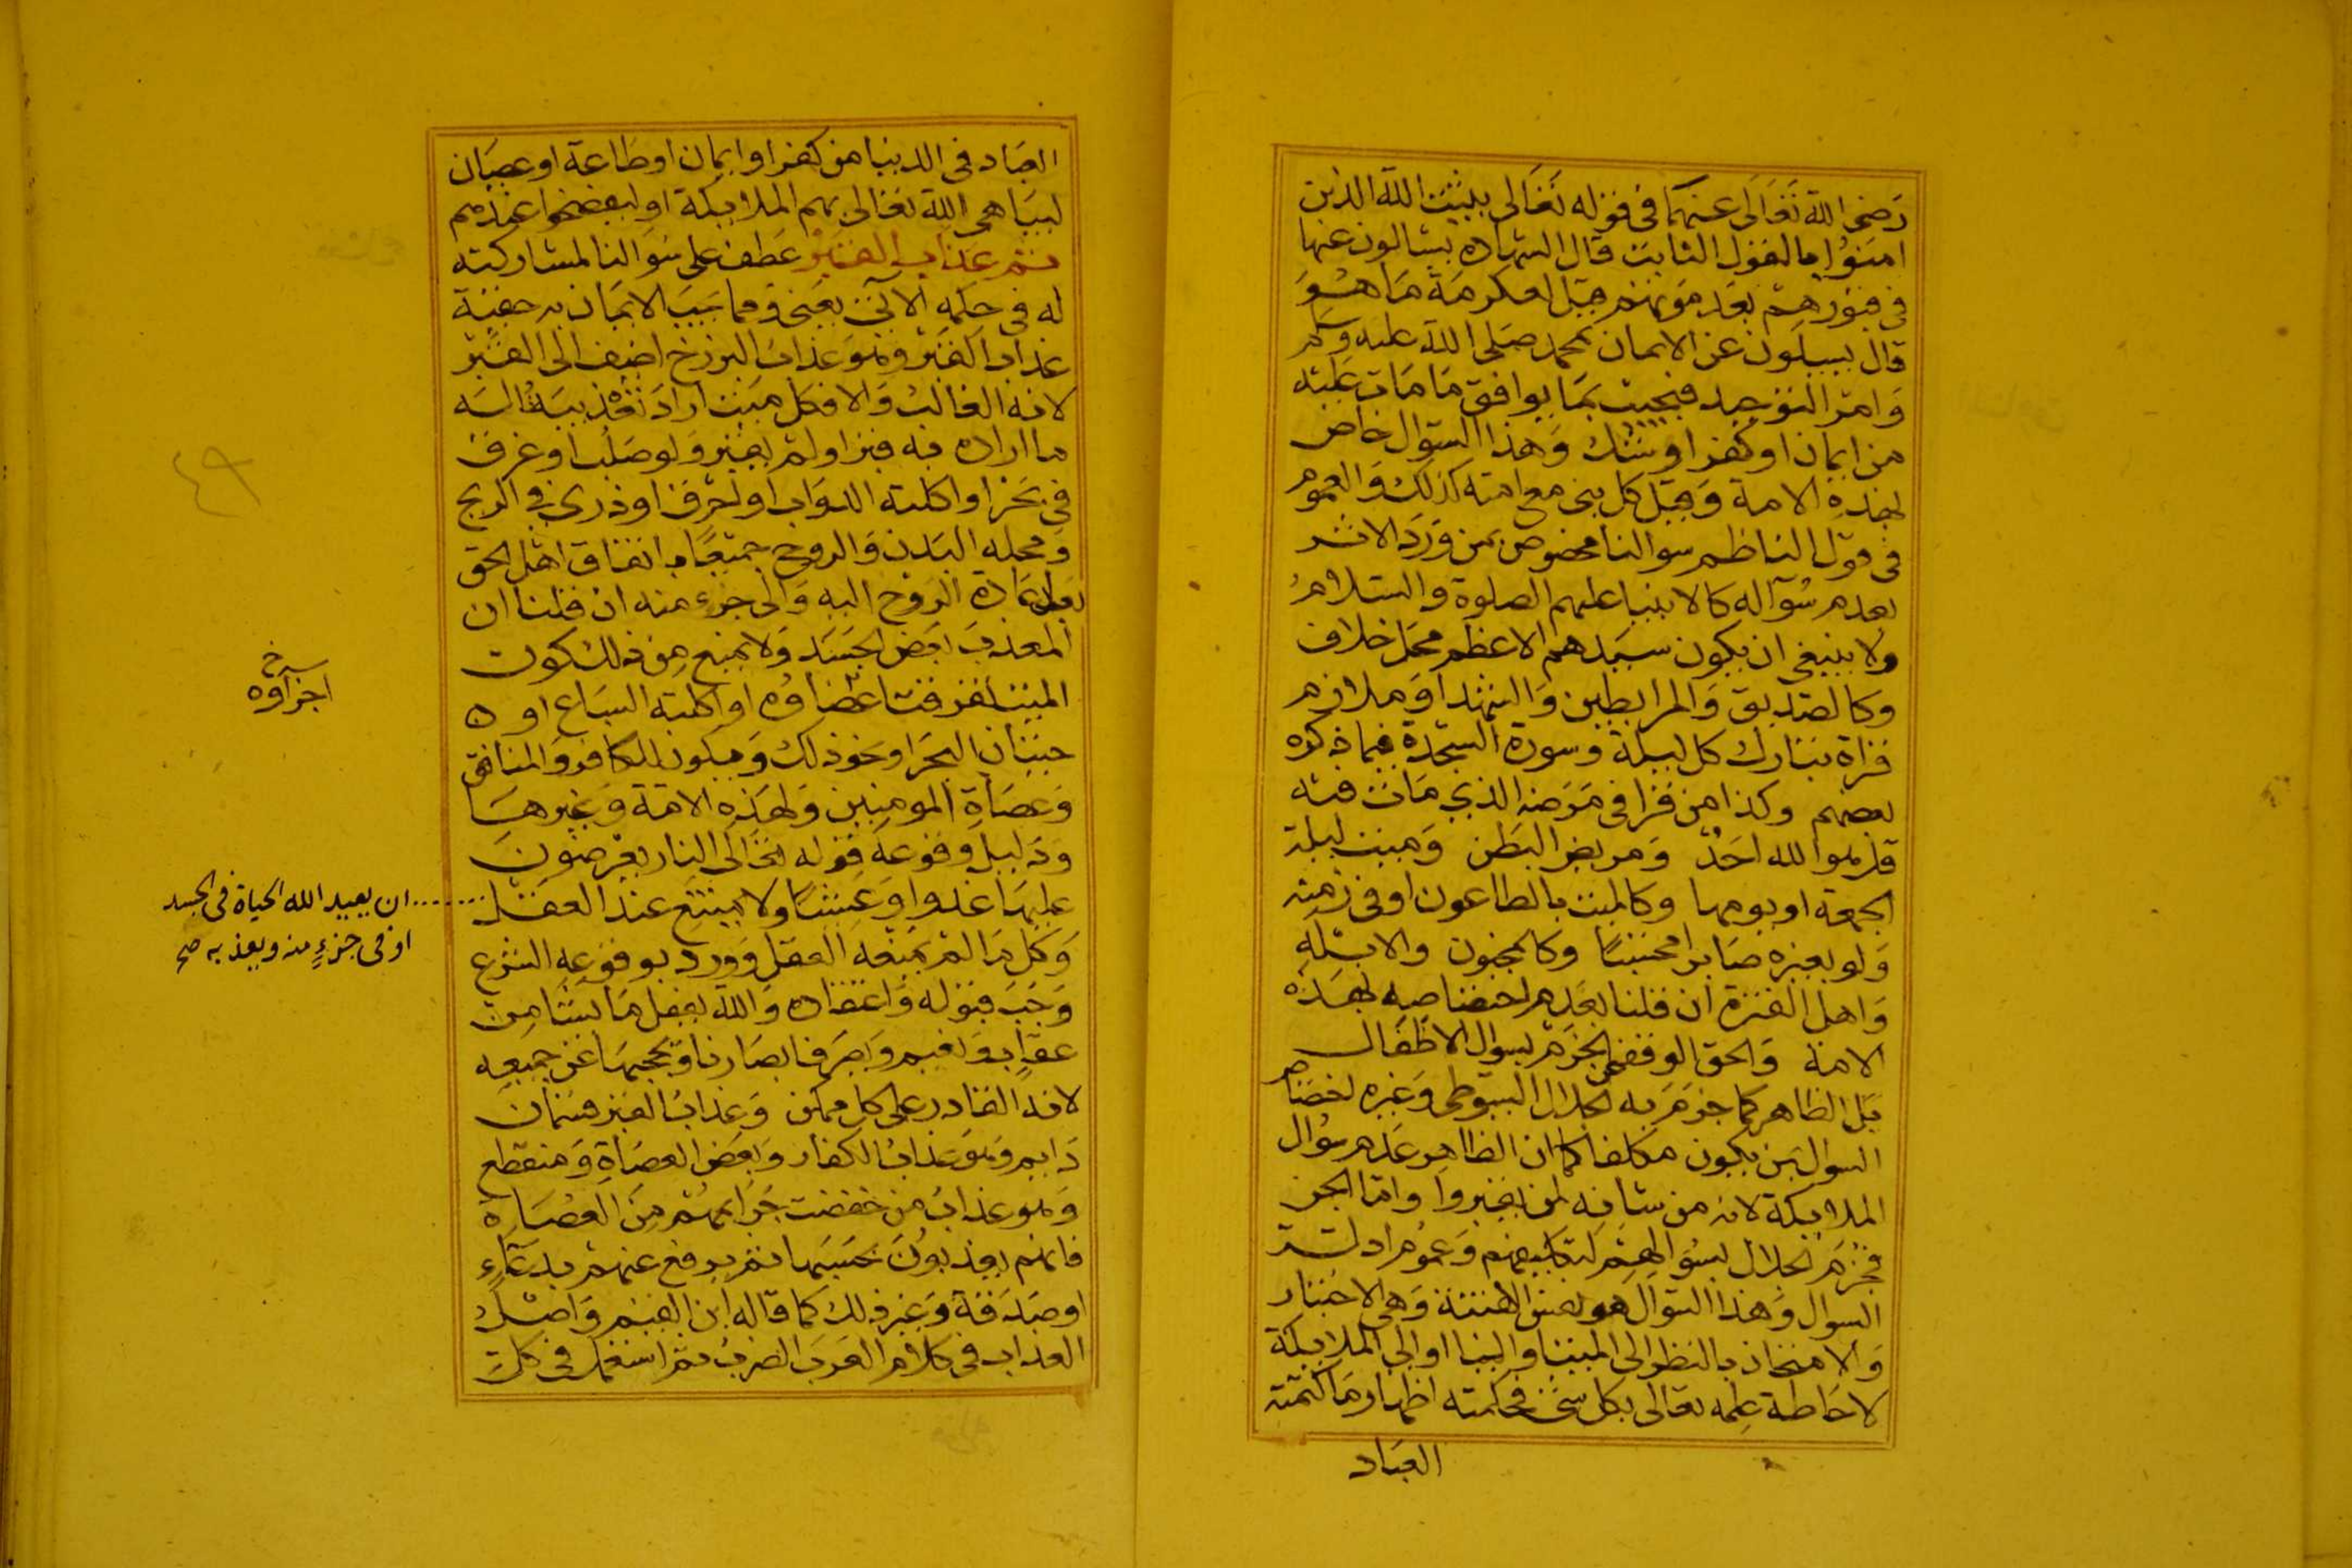 رضى الله تعالى عنهما فى قوله تعالى يثبت الله الذين
امنوا بالقول الثابت قال الشهادة يسالون عنها
فى قبورهم بعد موتهم قيل لعكرمة ما هو
قال يسيلون عن الايمان بمحمد صلى الله عليه وسلم
وامر التوحيد فيجيب بما يوافق ما مات عليه
من ايمان او كفر او شك وهذا السوال خاص
بهذه الامة وقيل كل نبى مع امته كذلك والعموم
فى قول الناظم سوالنا مخصوص بمن ورد الاثر
بعدم سواله كالانبيا عليهم الصلوة والسلام
ولا ينبغى ان يكون سيدهم الاعظم محل خلاف
وكالصديق والمرابطين والشهدا وملازم
قراة تبارك كل ليلة وسورة السجدة فيما ذكره
بعضهم وكذا من قرا فى مرضه الذي مات فيه
قل هو الله احد ومريض البطن وميت ليلة
الجمعة او يومها وكالميت بالطاعون او فى زمنه
ولو بغيره صابرا محتسبا وكالمجنون والابله
واهل الفترة ان قلنا بعدم اختصاصه بهذه
الامة والحق الوقف عن الجزم بسوال الاطفال
بل الظاهر كما جزم به الجلال السيوطى وغيره اختصاص
السوال بمن يكون مكلفا كما ان الظاهر عدم سوال
الملايكة لانه من شانه لمن يقبروا واما الجن
فجزم الجلال بسوالهم لتكليفهم وعموم ادلة
السوال وهذا السوال هو نفس الفتنة وهى الاختبار
والامتحان بالنظر الى الميت او الينا او الى الملايكة
لاحاطة علمه تعالى بكل شى فحكمته اظهار ما كتمته
العباد
العباد فى الدنيا من كفر او ايمان او طاعة او عصيان
ليباهى الله تعالى بهم الملايكة او ليفضحوا عندهم
ثم عذاب القبر عطف على سوالنا لمشاركته
له فى حكمه الآتى يعنى ومما يجب الايمان به حقية
عذاب القبر وهو عذاب البرزخ اضيف الى القبر
لانه الغالب والا فكل ميت اراد تعذيبه اناله
ما اراده به قبر او لم يقبر ولو صلب او غرق
فى بحر او اكلته الدواب او احرق او ذرى فى الريح
ومحله البدن والروح جميعا باتفاق اهل الحق
بعد اعادة الروح اليه والى جزء منه ان قلنا ان
المعذب بعض الجسد ولا يمنع من ذلك كون
الميت تفرقت اعضاوه او اكلته السباع او
حيتان البحر او نحو ذلك ويكون للكافر والمنافق
وعصاة المومنين ولهذه الامة وغيرها
ودليل وقوعه قوله تعالى النار يعرضون
عليها غدوا وعشيا ولا يمتنع عند العقل
وكل ما لم يمنعه العقل وورد بوقوعه الشرع
وجب قبوله واعتقاده والله يفعل ما يشا من
عقاب ونعيم ويصرف ابصارنا ويحجبها عن جميعه
لانه القادر على كل ممكن وعذاب القبر قسمان
دايم وهو عذاب الكفار وبعض العصاة ومنقطع
وهو عذاب من خففت جرايمهم من العصاة
فانهم يعذبون بحسبها ثم يرفع عنهم بدعاء
او صدقة وغير ذلك كما قاله ابن القيم واصل
العذاب فى كلام العرب الضرب ثم استعمل فى كل
اجزاوه
ان يعيد الله الحياة فى الجسد
او فى جزء منه ويعذبه صح